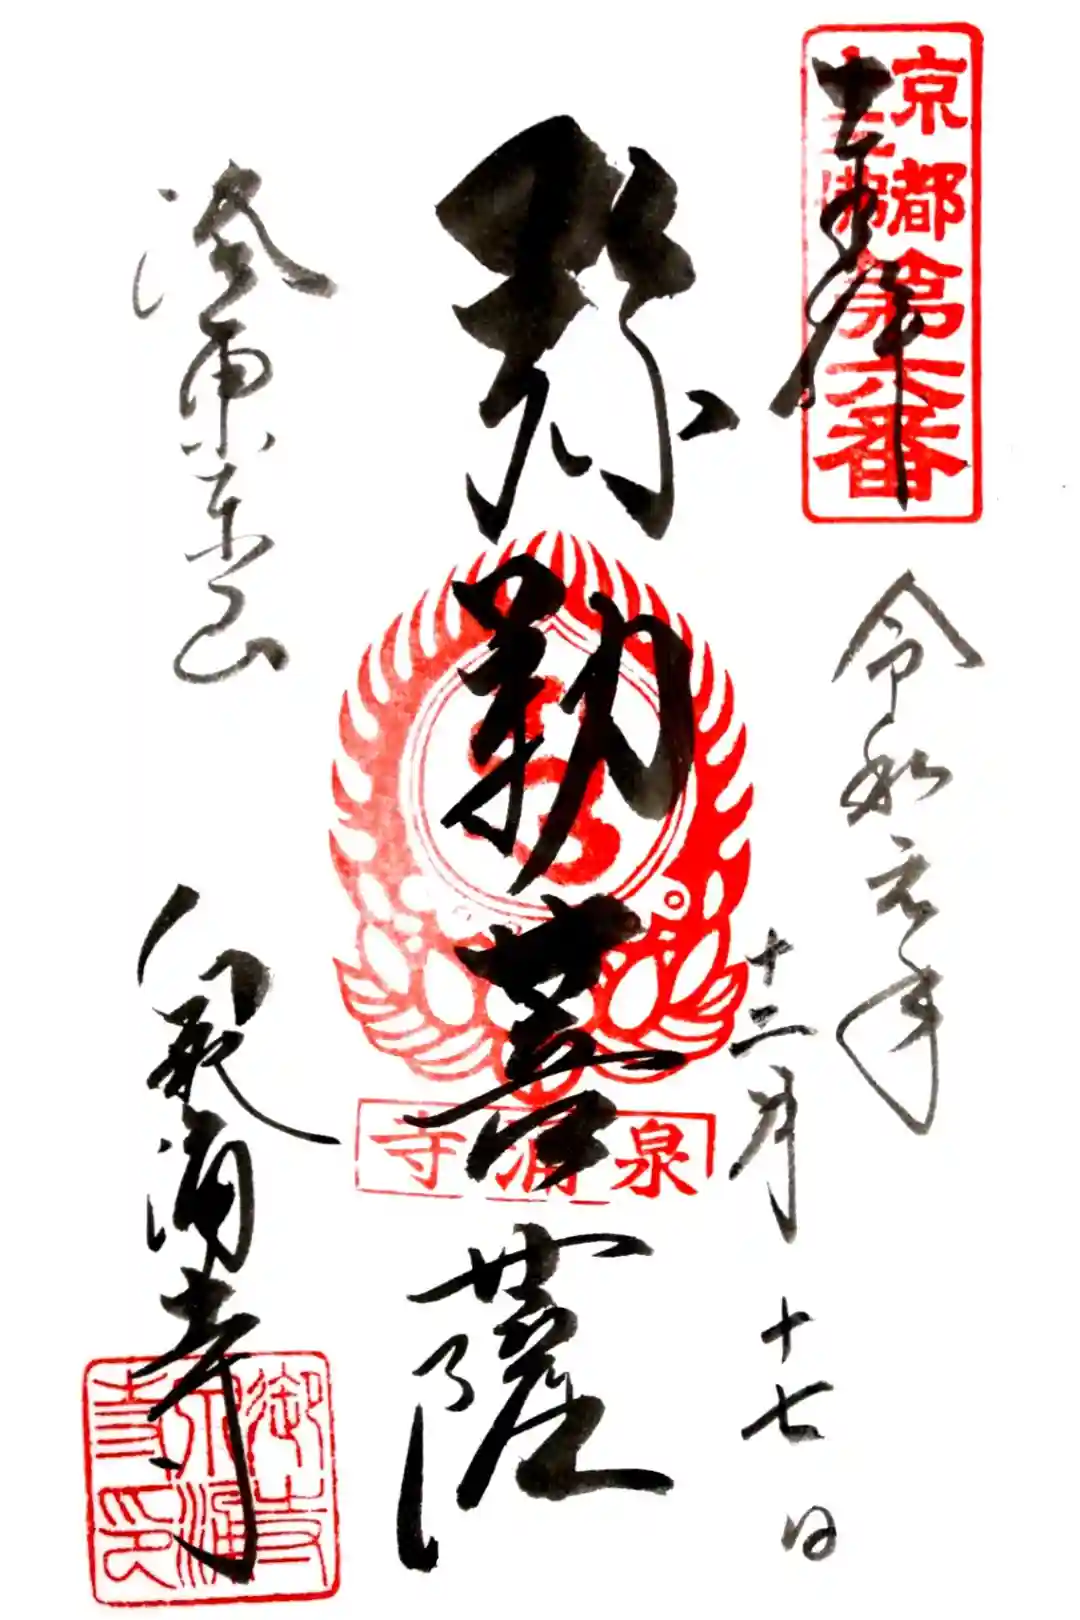 京都
十三佛
第六番
奉拝
令和元年
十二月十七日
弥勒菩薩
泉涌寺
洛東東山
御寺泉涌寺
御寺
泉涌
寺印